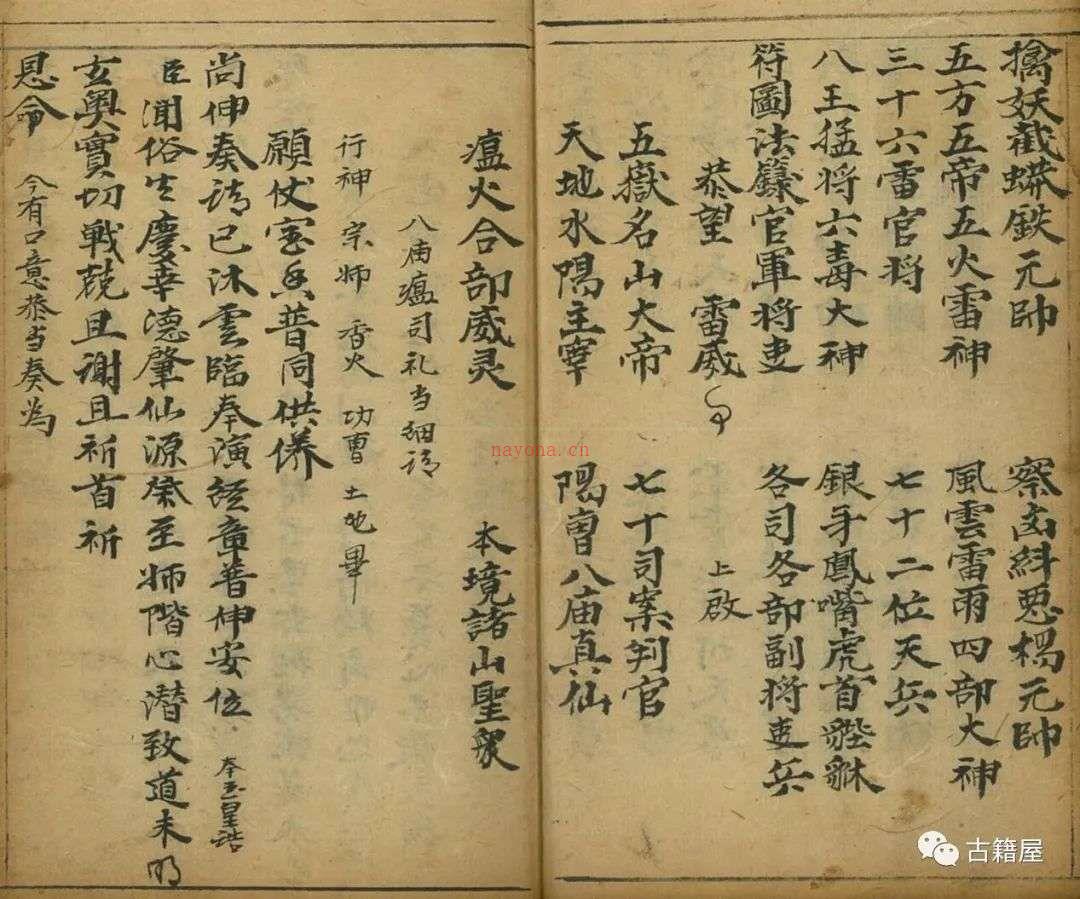 擒妖截蟒鉄元帥
察凶糾惡楊元帥
五方五帝五火雷神
風雲雷雨四部大神
三十六雷官将
七十二位天兵
八王猛将六毒大神
銀牙鳳嘴虎首貔貅
符圖法籙官軍将吏
各司各部副将吏兵
恭望 雷威
上啟
五嶽名山大帝
七十司案判官
天地水陽主宰
陽曹八庙真仙
瘟火合部威灵
本境諸山聖衆
八庙瘟司礼当細请
行神 宗師 香火 功曹 土地畢
願仗寔香普同供養
尚伸奏请已沐雲臨奉演经章普伸安位 奉玉皇诰
臣闻俗生慶幸德肇仙源叅至师階心潜致道未明
玄奥實切戰兢且谢且祈首祈
恩命 今有口意恭当奏為
nayona.cn
古籍屋